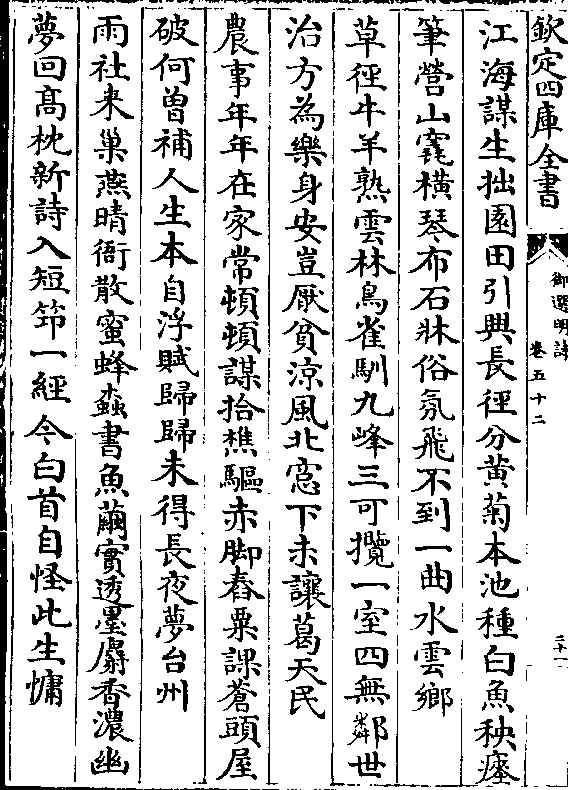 欽定四庫全書
御選明詩
卷五十二
三十一
江海謀生拙園田引興長徑分黄菊本池種白魚秧瘞
筆營山竁横琴布石牀俗氛飛不到一曲水雲鄉
草徑牛羊熟雲林鳥雀馴九峰三可攬一室四無鄰世
治方為樂身安豈厭貧涼風北窓下未讓葛天民
農事年年在家常頓頓謀抬樵驅赤脚舂粟課蒼頭屋
破何曽補人生本自浮賦歸歸未得長夜夢台州
雨社来巢燕晴衙散蜜蜂蟫書魚繭實透墨麝香濃幽
夢回髙枕新詩入短筇一經今白首自怪此生慵